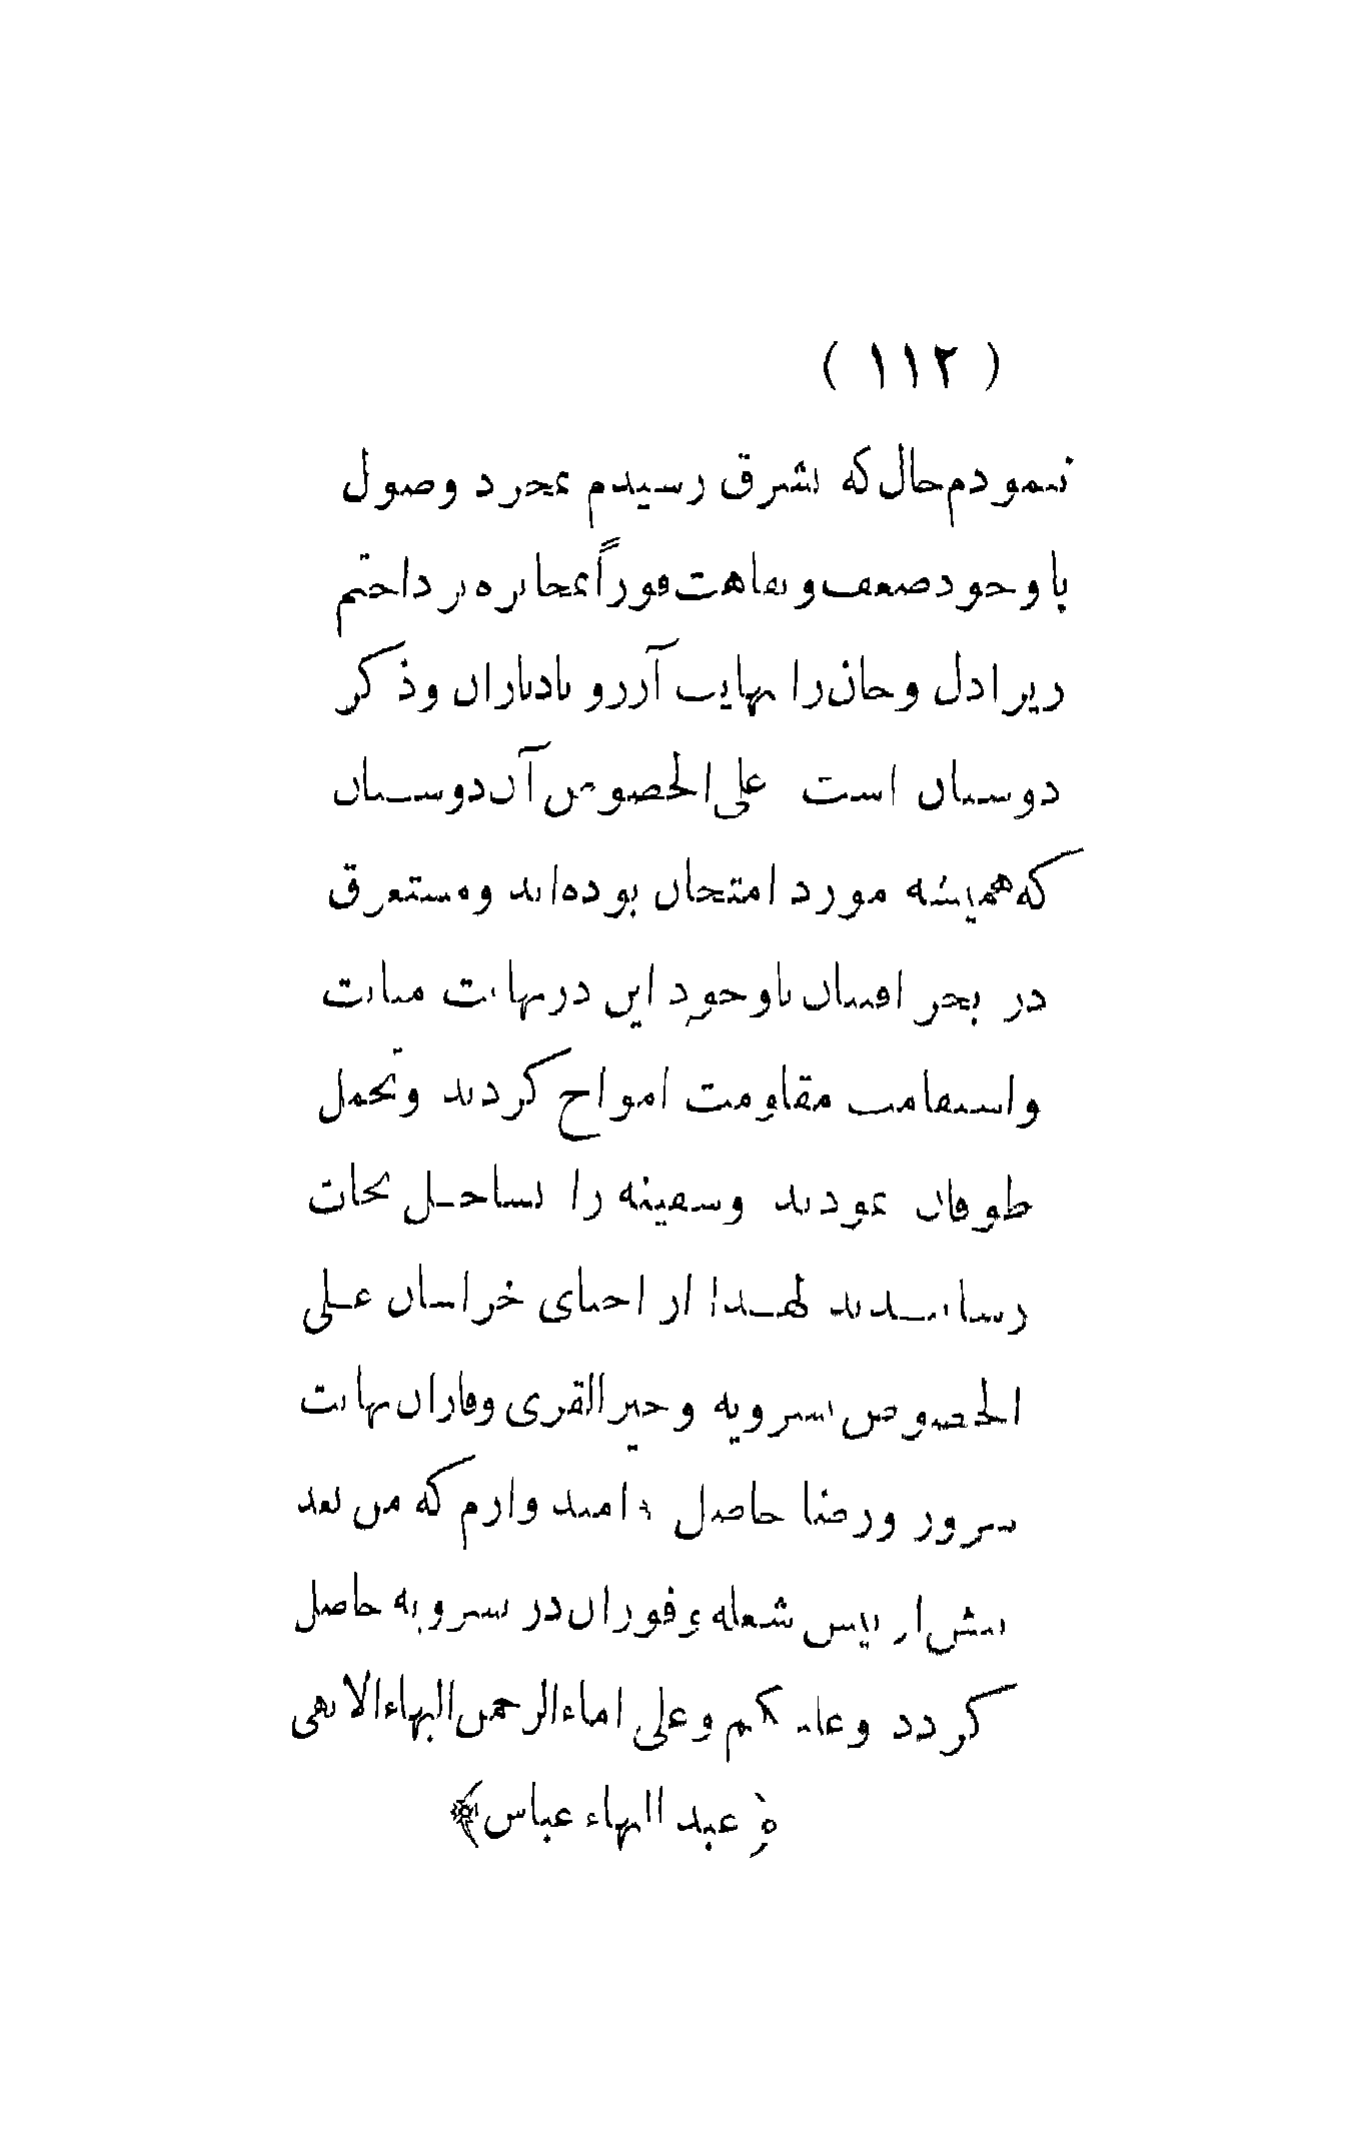 ( ١١٢ )
ننمودم حال که بشرق رسیدم بمجرد وصول
با وجود ضعف و نقاهت فوراً بمخابره پرداختم
زیرا دل و جان را نهایت آرزو یاد یاران و ذکر
دوستان است علی الخصوص آن دوستان
که همیشه مورد امتحان بوده‌اند و مستغرق
در بحر افتتان با وجود این در نهایت متانت
و استقامت مقاومت امواج کردند و تحمل
طوفان نمودند و سفینه را بساحل نجات
رساندند لهذا از احبای خراسان علی
الخصوص بشرویه و خیر القری و فاران نهایت
سرور و رضا حاصل امیدوارم که من بعد
بیش از پیش شعله و فوران در بشرویه حاصل
گردد و علیکم و علی اماء الرحمن البهاء الابهی
﴿ عبد البهاء عباس ﴾